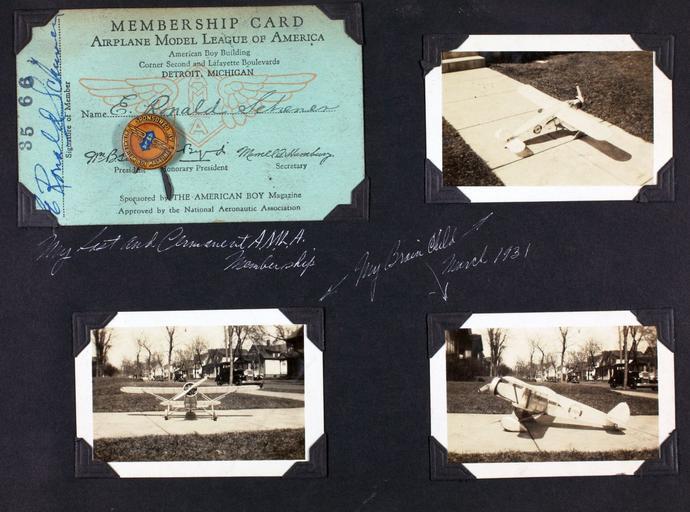 MEMBERSHIP CARD
AIRPLANE MODEL LEAGUE OF AMERICA
American Boy Building
Corner Second and Lafayette Boulevards
DETROIT, MICHIGAN
Name E. Ronald Schener
President
Honorary President
Secretary
Sponsored by THE AMERICAN BOY Magazine
Approved by the National Aeronautic Association
35 66
E Ronald Schener
Signature of Member
My Last and Permanent A.M.L.A.
Membership
My Brain Child
March 1931